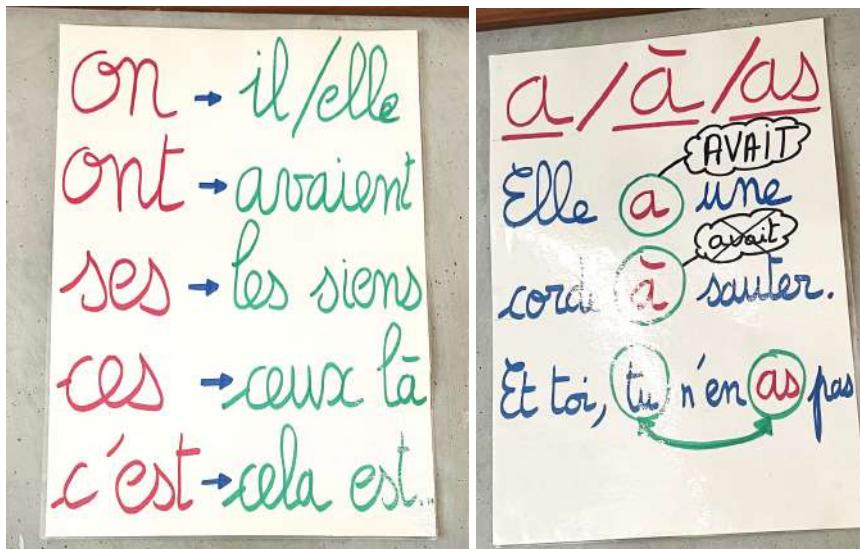 on → il/elle
ont → avaient
ses → les siens
ces → ceux là
c'est → cela est...
a/à/as
AVAIT
Elle a une
avait
corde à sauter.
Et toi, tu n'en as pas